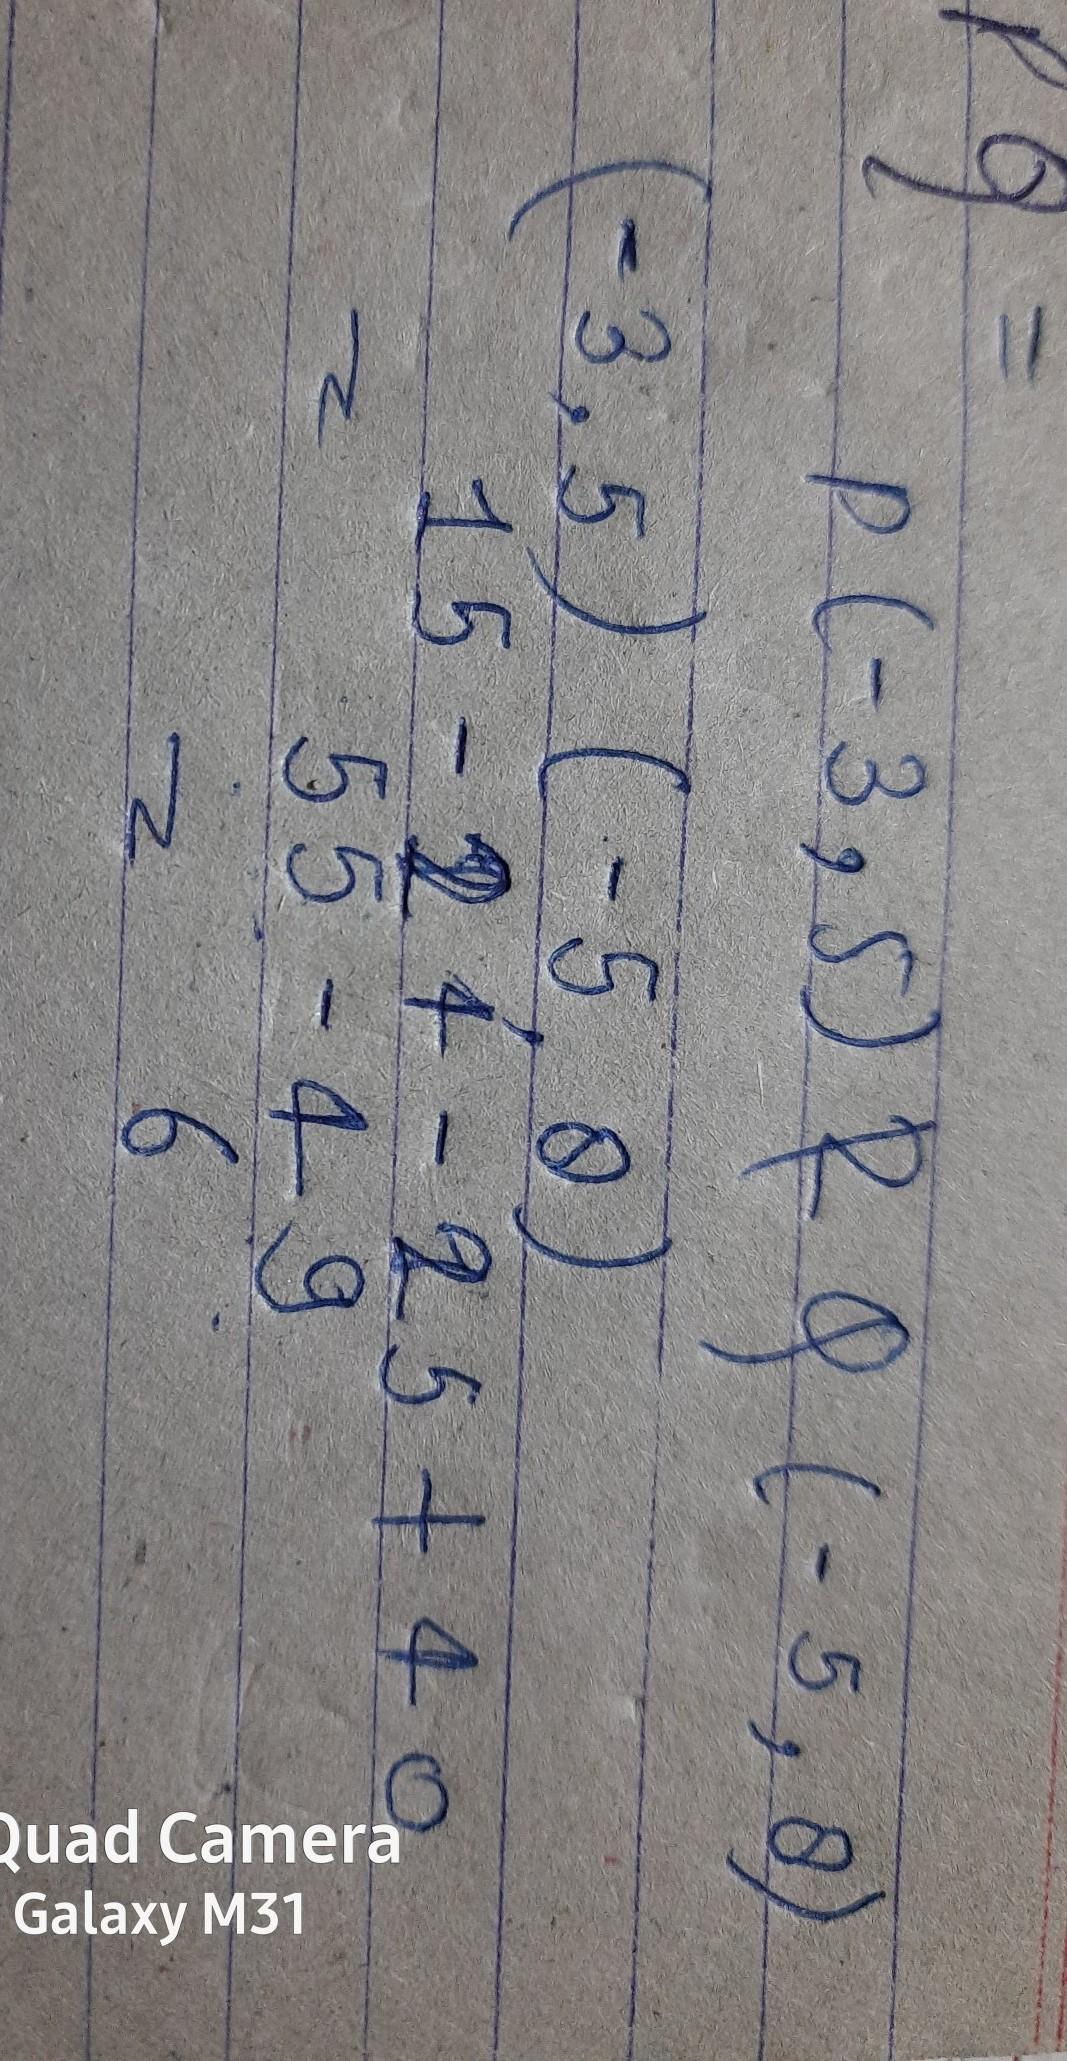 PQ =
P(-3,5) & Q (-5,8)
(-3,5) (-5,8)
15 - 24 - 25 + 40
= 55 - 49
= 6
Quad Camera
Galaxy M31